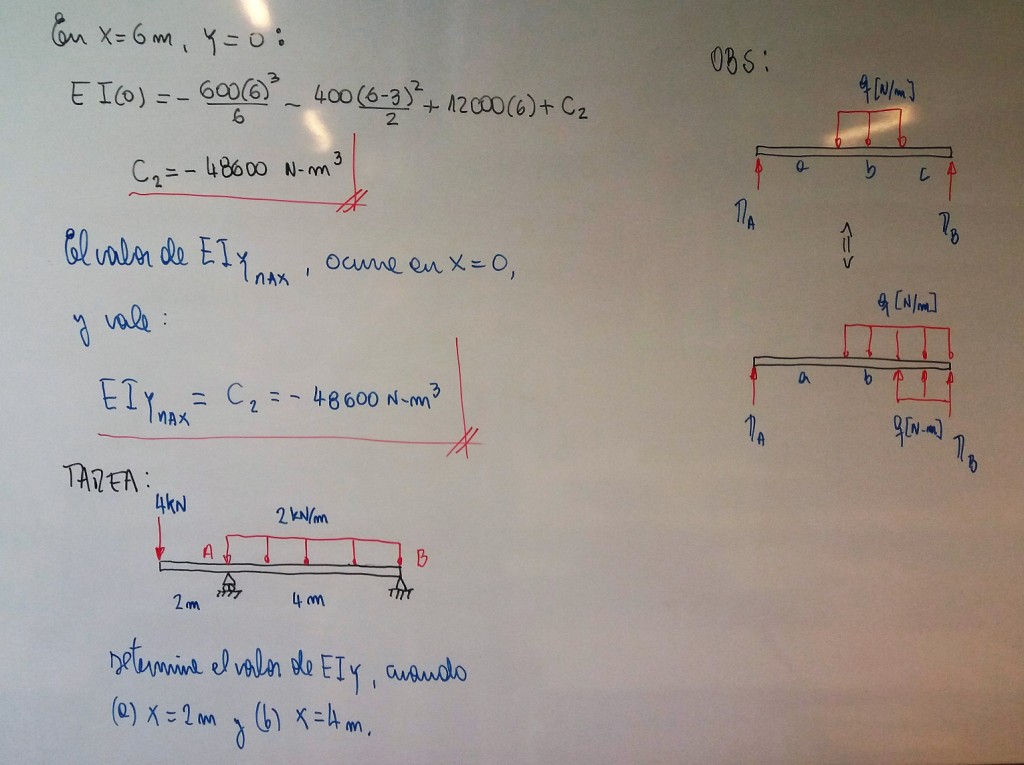 En x=6m, y=0:
EI(0) = - 600(6)³/6 - 400(6-3)²/2 + 12000(6) + C₂
C₂ = - 48600 N-m³
El valor de EIyMAX, ocurre en x=0,
y vale:
EIyMAX = C₂ = - 48600 N-m³
TAREA:
4kN
2 kN/m
A
B
2m
4m
Determine el valor de EIy, cuando
(a) x=2m y (b) x=4m.
OBS:
q [N/m]
a b c
RA
RB
q [N/m]
a b
RA
q [N-m]
RB